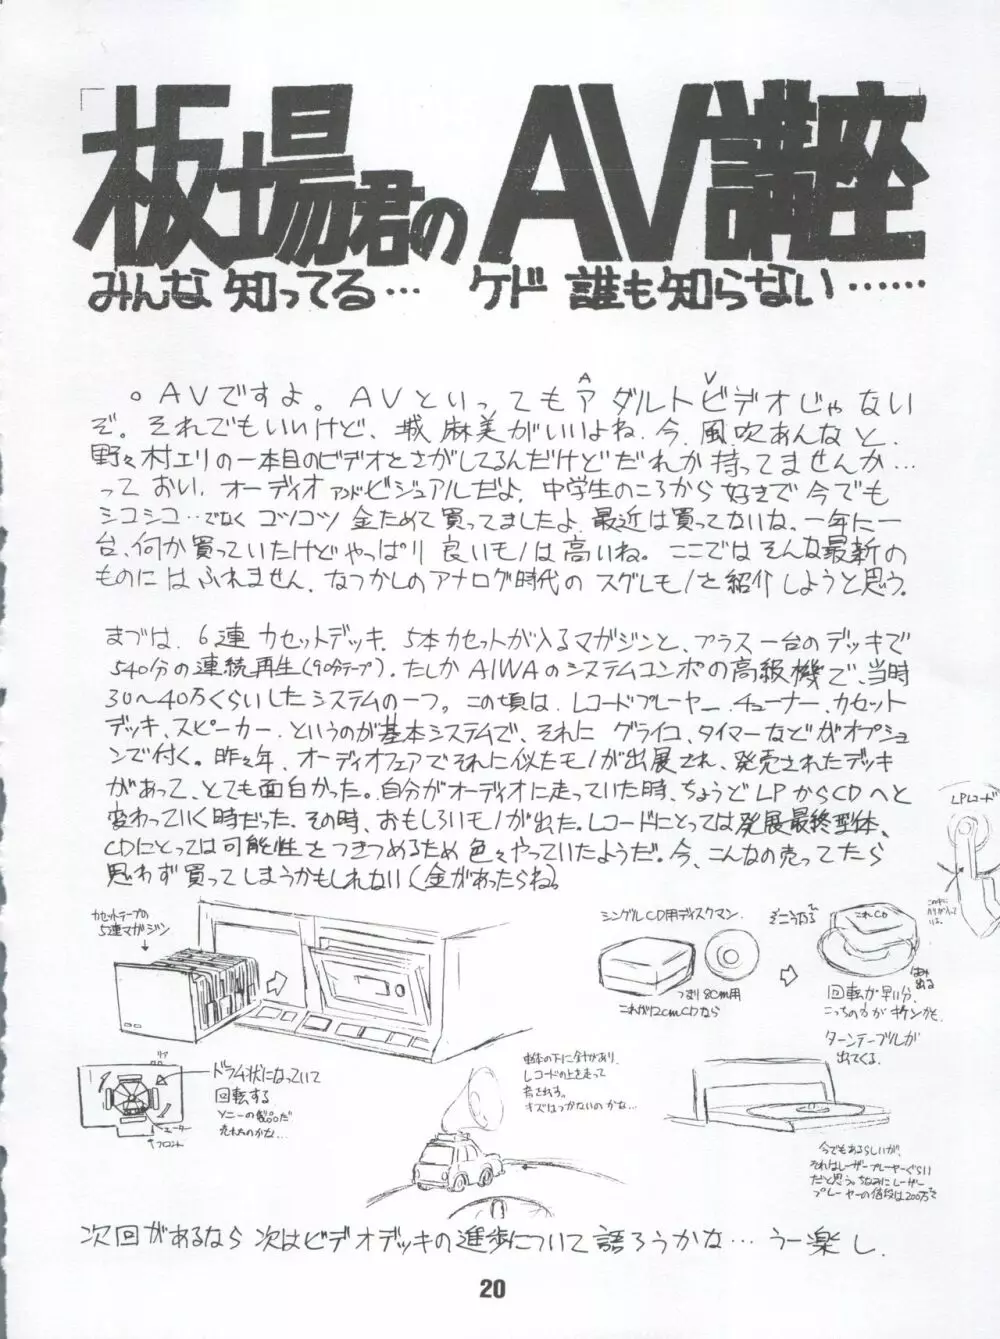 「板場君のAV講座」
みんな知ってる… ケド 誰も知らない……
○AVですよ。AVといってもアダルトビデオじゃない
A V
ぞ。それでもいいけど、城麻美がいいよね、今、風吹あんなと、
野々村エリの一本目のビデオとさがしてるんだけどだれか持ってませんか…
っておい、オーディオアンドビジュアルだよ、中学生のころから好きで今でも
シコシコ…でなくコツコツ金ためて買ってましたよ、最近は買ってないな、一年に一
台、何か買っていたけどやっぱり良いモノは高いね。ここではそんな最新の
ものにはふれません、なつかしのアナログ時代のスグレモノを紹介しようと思う。
まづは、6連カセットデッキ、5本カセットが入るマガジンと、プラス一台のデッキで
540分の連続再生(90分テープ)、たしかAIWAのシステムコンポの高級機で、当時
30〜40万くらいしたシステムの一つ。この頃は、レコードプレーヤー、チューナー、カセット
デッキ、スピーカー、というのが基本システムで、それにグライコ、タイマーなどがオプショ
ンで付く。昨々年、オーディオフェアでそれに似たモノが出展され、発売されたデッキ
があって、とても面白かった。自分がオーディオに走っていた時、ちょうどLPからCDへと
変わっていく時だった、その時、おもしろいモノが出た。レコードにとっては発展最終型体、
CDにとっては可能性をつきつめるため色々やっていたようだ。今、こんなの売ってたら
思わず買ってしまうかもしれない(金があったらね。
LPレコード
この中に
ハリが入って
いる。
カセットテープの
5連マガジン
シングルCD用ディスクマン。
つまり8cm用
これが12cmCDなら
そこうなる
これCD
はみ
出る
回転が早い分、
こっちの方がオドンザを
ターンテーブルが
出てくる。
リア
モーター
フロント
ドラム状になっていて
回転する
ソニーの製品だ
売れたのかな…
車体の下に針があり、
レコードの上を走って
音を出す。
キズはつかないのかな…
今でもあるらしいが、
それはレーザープレーヤーぐらい
だと思う。ちなみにレーザー
プレーヤーの値段は200万 〜
次回があるなら次はビデオデッキの進歩について語ろうかな… うー楽し、
20